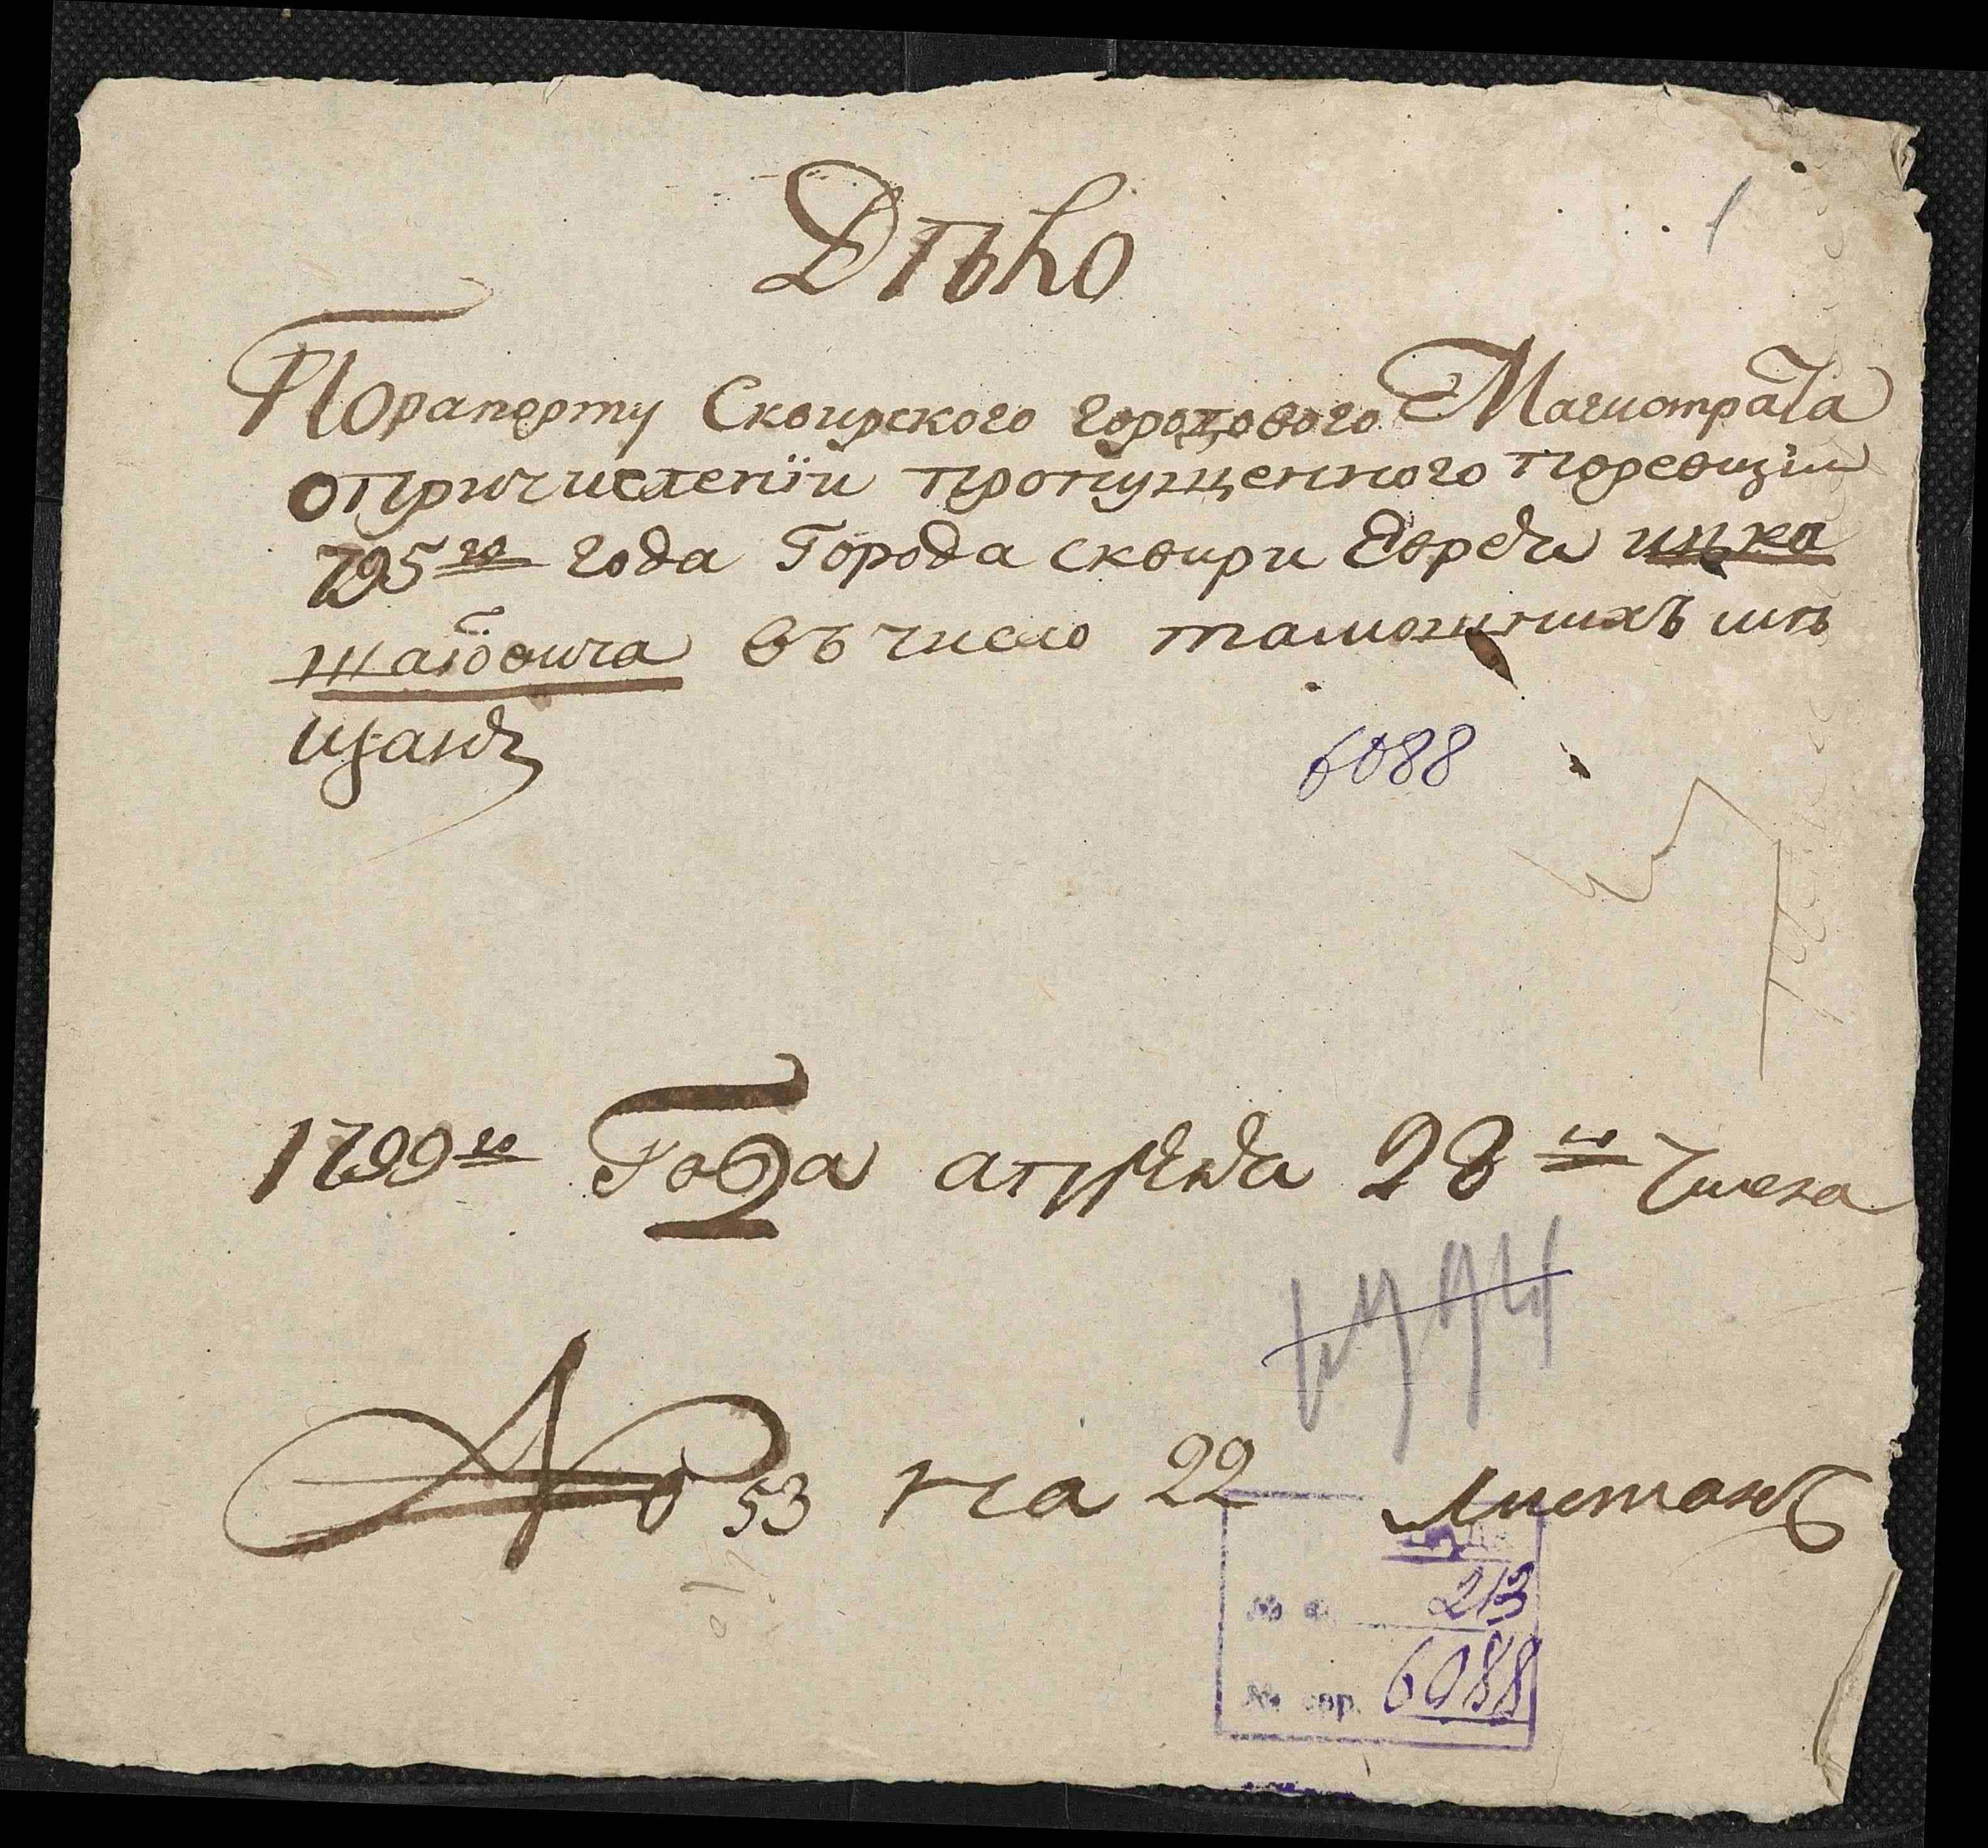 1
Дѣло
Порапорту Сквирского городового Магистрата
опричисленіи пропущенного поревизіи
795го года Города сквири Еврея ицка
въ число тамошнихъ мѣ
щанъ
6088
1799го Года апреля 28го Числа
№ 53 на 22 листахъ
213
№ спр. 6088